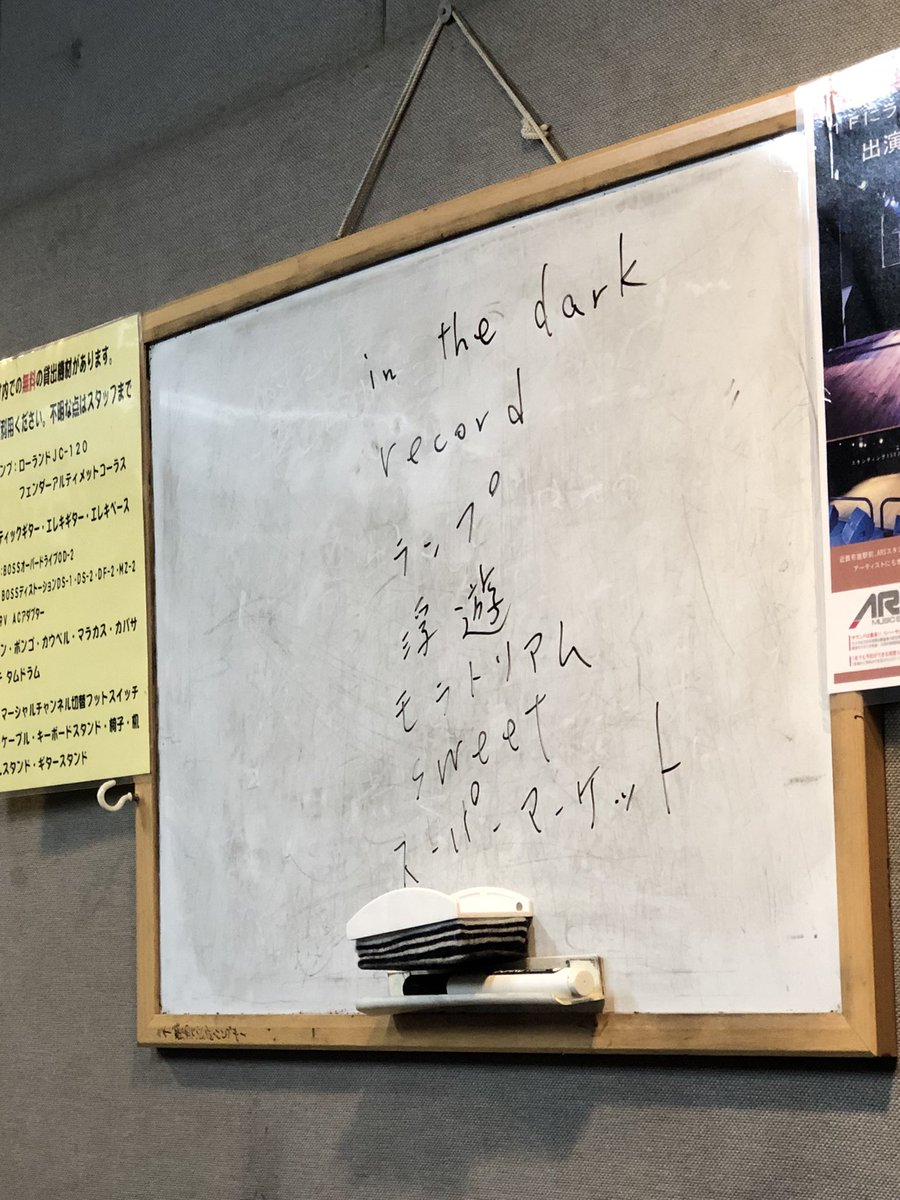 in the dark
record
ラップ
浮遊
モラトリアム
sweet
スーパーマーケット
内での無料の貸出機材があります。
利用ください。不明な点はスタッフまで
ンプ：ローランドJC-120
フェンダーアルティメットコーラス
ティックギター・エレキギター・エレキベース
：BOSSオーバードライブOD-2
BOSSディストーションDS-1・DS-2・DF-2・MZ-2
9V ACアダプター
ン・ボンゴ・カウベル・マラカス・カバサ
タムドラム
マーシャルチャンネル切替フットスイッチ
ケーブル・キーボードスタンド・椅子・机
スタンド・ギタースタンド
出演
アーティストにも
AR
MUSIC